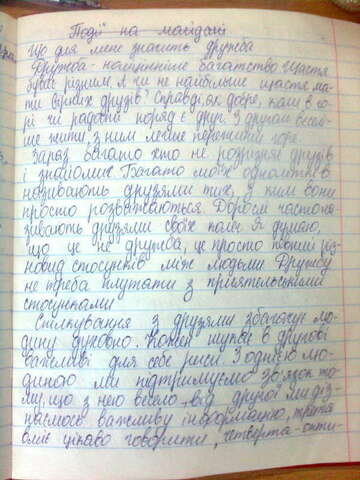 Події на майдані
Що для мене значить дружба
Дружба - найцінніше багатство. Щастя
буває різним. А чи не найбільше щастя ма-
ти вірних друзів? Справді, як добре, коли в го-
рі чи радості поряд є друг. З другом весел-
ше жити, з ним легше пережити горе.
Зараз багато хто не розрізняє друзів
і знайомих. Багато моїх однолітків
називають друзями тих, з ким вони
просто розважаються. Дорослі часто на-
зивають друзями своїх колег. Я думаю,
що це не дружба, це просто певний різ-
новид стосунків між людьми. Дружбу
не треба плутати з приятельськими
стосунками.
Спілкування з друзями збагачує лю-
дину духовно. Кожен шукає в другові
важливі для себе риси. З однією лю-
диною ми підтримуємо зв'язок то-
му, що з нею весело, від другої ми діз-
наємось важливу інформацію, третя
вміє цікаво говорити, четверта - опти-